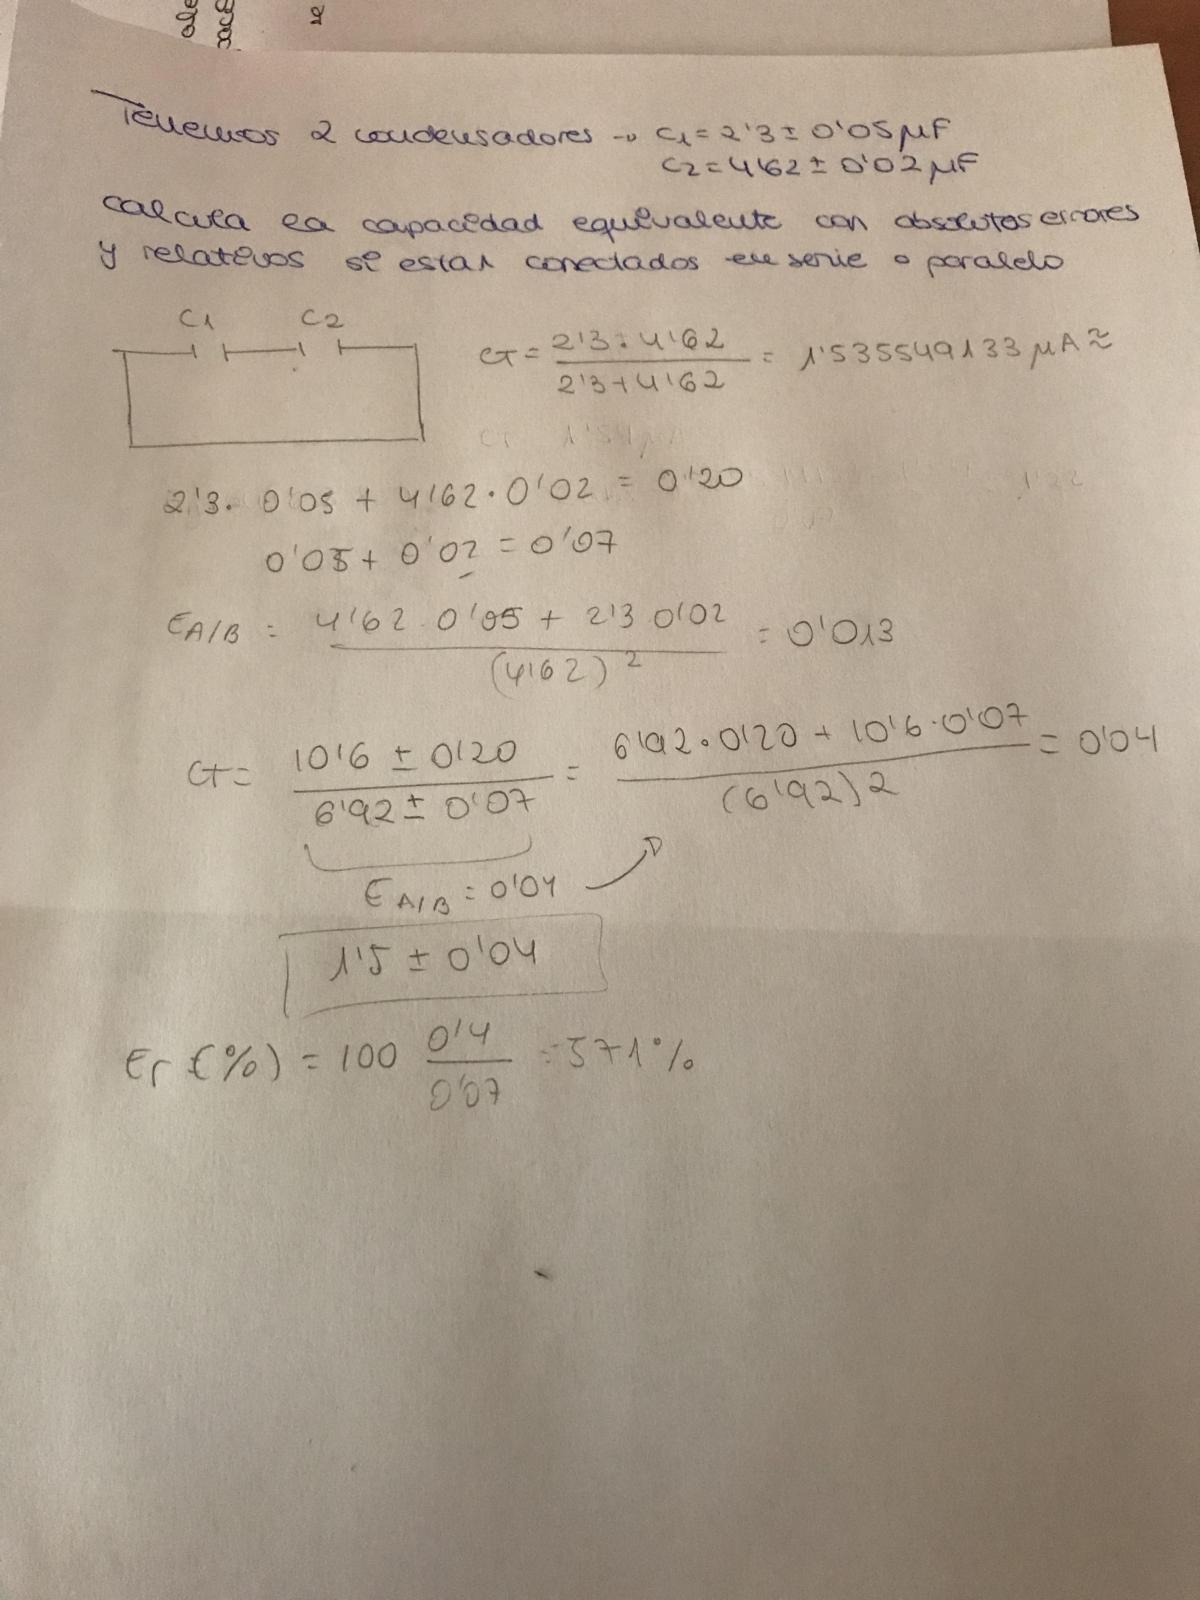 Tenemos 2 condensadores → C1 = 2'3 ± 0'05 μF
C2 = 4'62 ± 0'02 μF
calcula la capacidad equivalente con absolutos errores
y relativos si estan conectados en serie o paralelo
C1 C2
CT = 2'3 · 4'62 / 2'3 + 4'62 = 1'535549133 μA ≈
CT 1'54 μA
2'3 · 0'05 + 4'62 · 0'02 = 0'20
0'05 + 0'02 = 0'07
EA/B = 4'62 · 0'05 + 2'3 0'02 / (4'62)² = 0'013
CT = 10'6 ± 0'20 / 6'92 ± 0'07 = 6'92 · 0'20 + 10'6 · 0'07 / (6'92)2 = 0'04
EA/B = 0'04
1'5 ± 0'04
Er (%) = 100 0'4 / 0'07 = 571%